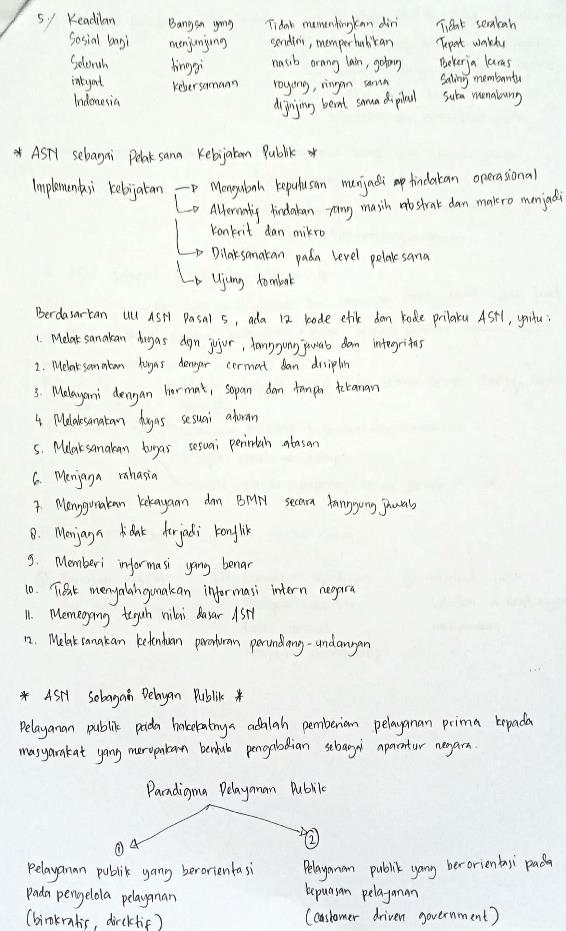 5./ Keadilan Bangsa yang Tidak mementingkan diri Tidak serakah
Sosial bagi menjunjung sendiri, memperhatikan Tepat waktu
Seluruh tinggi nasib orang lain, gotong Bekerja keras
rakyat kebersamaan royong, ringan sama Saling membantu
Indonesia dijinjing berat sama dipikul Suka menabung
* ASN sebagai Pelaksana Kebijakan Publik *
Implementasi kebijakan → Mengubah keputusan menjadi tindakan operasional
→ Alternatif tindakan yang masih abstrak dan makro menjadi
konkrit dan mikro
→ Dilaksanakan pada level pelaksana
→ Ujung tombak
Berdasarkan UU ASN Pasal 5, ada 12 kode etik dan kode prilaku ASN, yaitu:
1. Melaksanakan tugas dgn jujur, tanggungjawab dan integritas
2. Melaksanakan tugas dengan cermat dan disiplin
3. Melayani dengan hormat, sopan dan tanpa tekanan
4. Melaksanakan tugas sesuai aturan
5. Melaksanakan tugas sesuai perintah atasan
6. Menjaga rahasia
7. Menggunakan kekayaan dan BMN secara tanggung jawab
8. Menjaga tidak terjadi konflik
9. Memberi informasi yang benar
10. Tidak menyalahgunakan informasi intern negara
11. Memegang teguh nilai dasar ASN
12. Melaksanakan ketentuan peraturan perundang-undangan
* ASN Sebagai Pelayan Publik *
Pelayanan publik pada hakekatnya adalah pemberian pelayanan prima kepada
masyarakat yang merupakan bentuk pengabdian sebagai aparatur negara.
Paradigma Pelayanan Publik
① ②
Pelayanan publik yang berorientasi Pelayanan publik yang berorientasi pada
pada pengelola pelayanan kepuasan pelayanan
(birokratis, direktif) (customer driven government)